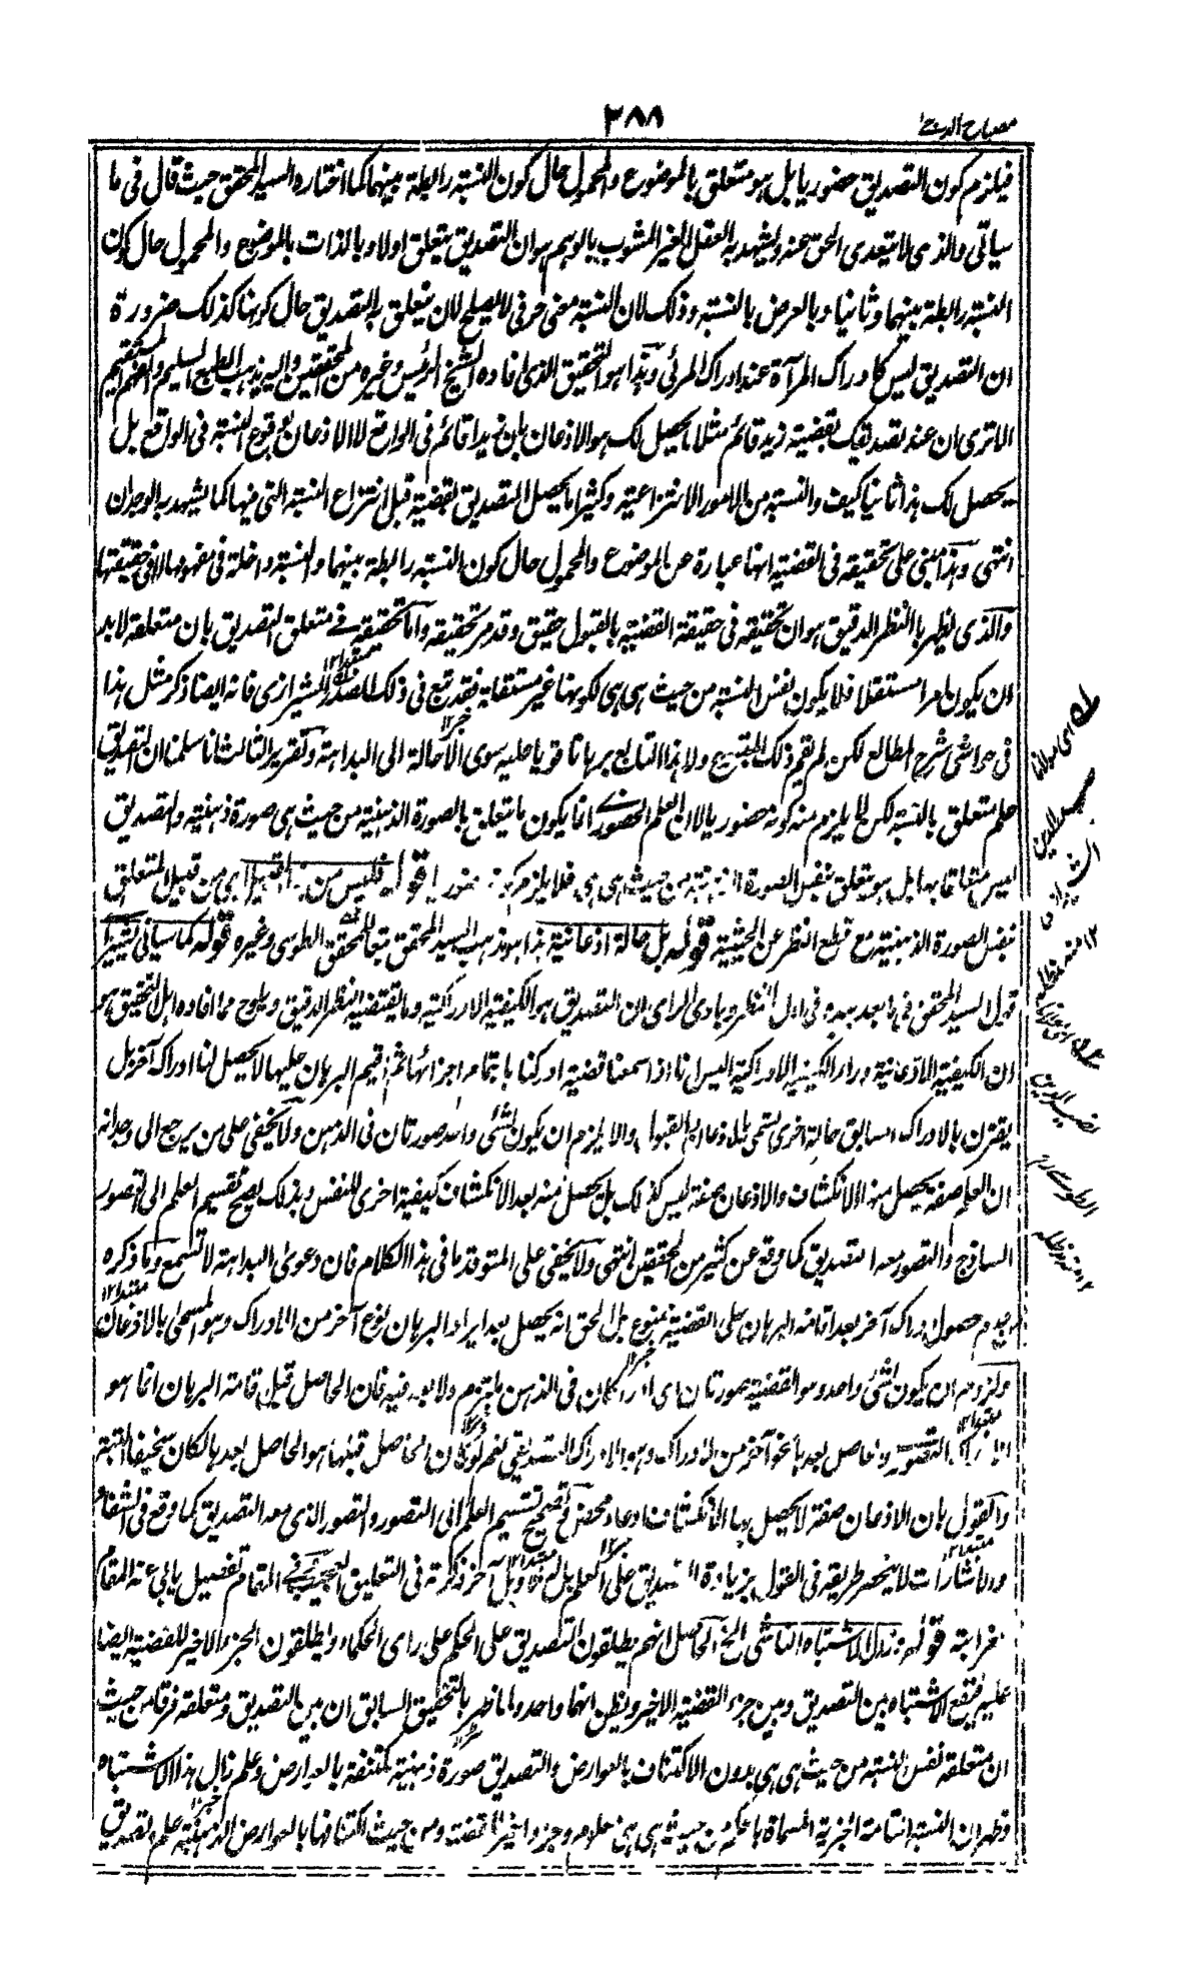 مصباح الدجى
٣٨٨
فيلزم كون التصديق حضوريا بل هو متعلق بالموضوع والمحمول حال كون النسبة رابطة بينهما كما اختاره السيد المحقق حيث قال في ما
سياتي والذي لا يتعدى الحق عنه ويشهد به العقل الغير المشوب بالوهم هو ان التصديق يتعلق اولا وبالذات بالموضوع والمحمول حال كون
النسبة رابطة بينهما وثانيا وبالعرض بالنسبة وذلك لان النسبة معنى حرفي لا يصلح لان يتعلق به التصديق حال كونها كذلك ضرورة
ان التصديق ليس كادراك المرآة عند ادراك المرئي وهذا هو التحقيق الذي افاده الشيخ الرئيس وغيره من المحققين واليه يذهب الطبع السليم والفهم المستقيم
الا ترى ان عند تصديقك بقضية زيد قائم مثلا ما يحصل لك هو الاذعان بان زيدا قائم في الواقع لا الاذعان بوقوع النسبة في الواقع بل
يحصل لك هذا ثانيا كيف والنسبة من الامور الانتزاعية وكثيرا ما يحصل التصديق بقضية قبل انتزاع النسبة التي فيها كما يشهد به الوجدان
انتهى وهذا مبني على تحقيقه في القضية انها عبارة عن الموضوع والمحمول حال كون النسبة رابطة بينهما والنسبة داخلة في مفهومها لا في حقيقتها
والذي يظهر بالنظر الدقيق هو ان تحقيقه في حقيقة القضية بالقبول حقيق وقد مر تحقيقه واما تحقيقه في متعلق التصديق بان متعلقه لا بد
ان يكون امرا مستقلا فلا يكون نفس النسبة من حيث هي هي لكونها غير مستقلة فقد تبع في ذلك للصدر الشيرازي فانه ايضا ذكر مثل هذا
في حواشي شرح المطالع لكن لم يقم ذلك المتبوع ولا هذا التابع برهانا قويا عليه سوى الاحالة الى البداهة وتقرير الثالث انا سلمنا ان التصديق
علم متعلق بالنسبة لكن لا يلزم منه كونه حضوريا لان العلم الحضوري انما يكون ما يتعلق بالصورة الذهنية من حيث هي صورة ذهنية والتصديق
ليس متعلقا بها بل هو متعلق بنفس الصورة من حيث هي هي فلا يلزم كونه حضوريا قوله فليس من هذا القبيل اي من قبيل المتعلق
بنفس الصورة الذهنية مع قطع النظر عن الحيثية قوله بل حالة اذعانية هذا هو مذهب السيد المحقق تبعا للمحقق الطوسي وغيره قوله كما سياتي يشير الى
قول السيد المحقق في ما بعد بهذه في اول النظر وبادي الراي ان التصديق هو الكيفية الادراكية وما يقتضيه النظر الدقيق ويلوح مما افاده اهل التحقيق هو
ان الكيفية الاذعانية وراء الكيفية الادراكية اليس انا اذا سمعنا قضية وادركنا بتمام اجزائها ثم اقيم البرهان عليها لا يحصل لنا ادراك آخر بل
يقترن بالادراك السابق حالة اخرى تسمى بالاذعان والقبول والا يلزم ان يكون لشئ واحد صورتان في الذهن ولا يخفى على من يرجع الى وجدانه
ان العلم صفة يحصل منه الانكشاف والاذعان صفة ليس كذلك بل يحصل منه بعد الانكشاف كيفية اخرى للنفس وبذلك يصح تقسيم العلم الى التصور
الساذج والتصور معه التصديق كما وقع عن كثير من المحققين انتهى ولا يخفى على المتوقد ما في هذا الكلام فان دعوى البداهة لا تسمع وما ذكره
من عدم حصول ادراك آخر بعد اقامة البرهان على القضية ممنوع بل الحق انه يحصل بعد ايراد البرهان نوع آخر من الادراك وهو المسمى بالاذعان
ولزوم ان يكون لشئ واحد وهو القضية صورتان اي ادراكان في الذهن ملتزم ولا بعد فيه فان الحاصل قبل اقامة البرهان انما هو
الادراك التصوري والحاصل بعدها نحو آخر من الادراك وهو الادراك التصديقي نعم لو كان الحاصل قبلها هو الحاصل بعدها لكان سخيفا البتة
والقول بان الاذعان صفة لا يحصل بها الانكشاف ادعاء محض وتصحيح تقسيم العلم الى التصور والتصور الذي معه التصديق كما وقع في الشفاء
والاشارات لا ينحصر طريقه في القول بزيادة التصديق على العلم بل له تاويل آخر ذكرته في التعليق العجيب وفي المقام تفصيل يابى عنه المقام
لغرابته قوله وزال الاشتباه الناشي الخ الحاصل انهم يطلقون التصديق على الحكم على راي الحكماء ويطلقون الجزء الاخير للقضية ايضا
عليه فيقع الاشتباه بين التصديق وبين جزء القضية الاخير ويظن انهما واحد ولما ظهر بالتحقيق السابق ان بين التصديق ومتعلقه فرقا من حيث
ان متعلقه نفس النسبة من حيث هي هي بدون الاكتناف بالعوارض والتصديق صورة ذهنية مكتنفة بالعوارض وعلم زال هذا الاشتباه
وظهر ان النسبة التامة الخبرية المسماة بالحكم من حيث هي هي معلوم وجزء اخير للقضية ومن حيث اكتنافها بالعوارض الذهنية علم تصديق
له اي مولانا
صدر الدين
الشيرازي
١٢ منه مدظله
له اي مولانا
نصير الدين
الطوسي
١٢ منه مدظله